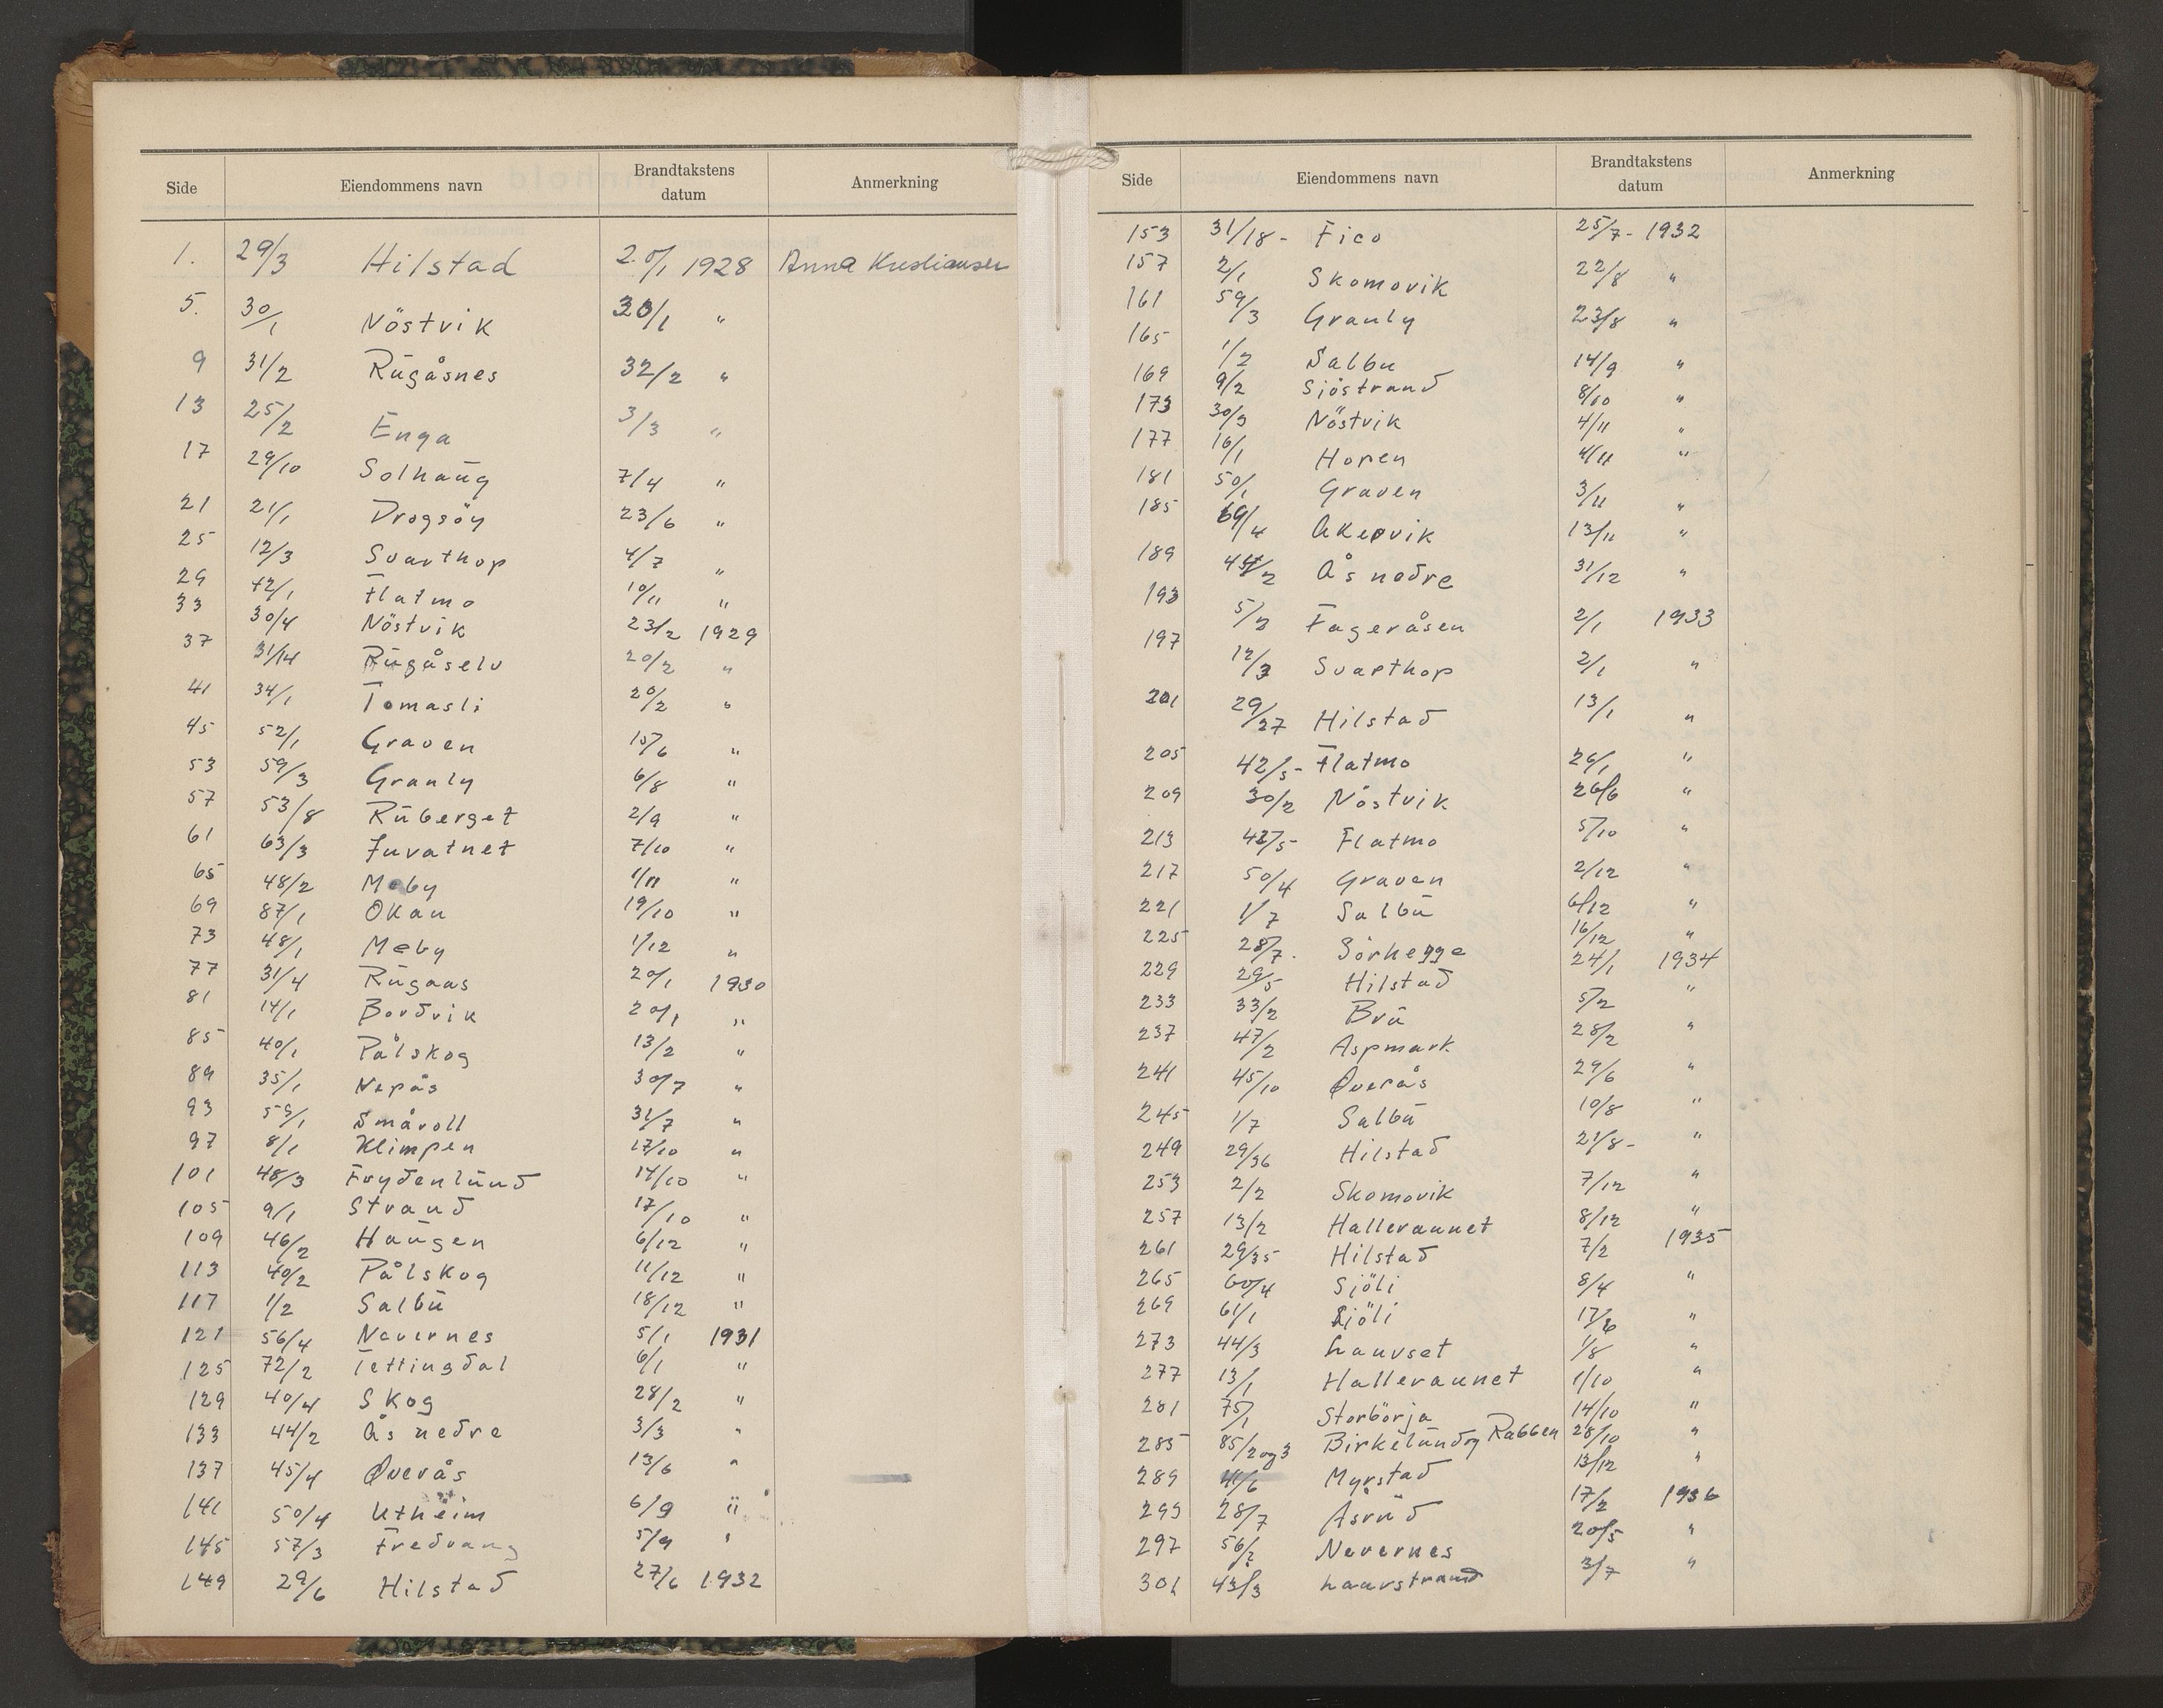 Side Eiendommens navn Brandtakstens datum Anmerkning
1. 29/3 Hilstad 20/1 1928 Anna Kristiansen
5. 30/1 Nöstvik 30/1 "
9 31/2 Rugåsnes 32/2 "
13 25/2 Enga 3/3 "
17 29/10 Solhaug 7/4 "
21 21/1 Drogsöy 23/6 "
25 12/3 Svarthop 4/7 "
29 42/1 Flatmo 10/11 "
33 30/4 Nöstvik 23/2 1929
37 31/14 Rugåselv 20/2 "
41 34/1 Tomasli 20/2 "
45 52/1 Graven 15/6 "
53 59/3 Granly 6/8 "
57 53/8 Ruberget 2/9 "
61 63/3 Juvatnet 7/10 "
65 48/2 Moby 1/11 "
69 87/1 Okan 19/10 "
73 48/1 Meby 1/12 "
77 31/4 Rugaas 20/1 1930
81 14/1 Bordvik 20/1 "
85 40/1 Pålskog 13/2 "
89 35/1 Nepås 30/7 "
93 59/1 Småvoll 31/7 "
97 8/1 Klimpen 17/10 "
101 48/3 Frydenlund 14/10 "
105 9/1 Strand 17/10 "
109 46/2 Haugen 6/12 "
113 40/2 Pålskog 11/12 "
117 1/2 Salbu 18/12 "
121 56/4 Nevernes 5/1 1931
125 72/2 Tettingdal 6/1 "
129 40/4 Skog 28/2 "
133 44/2 Ås nedre 3/3 "
137 45/4 Øverås 13/6 "
141 50/4 Utheim 6/9 "
145 57/3 Fredvang 5/9 "
149 29/6 Hilstad 27/6 1932
Side Eiendommens navn Brandtakstens datum Anmerkning
153 31/18 - Fico 25/7 - 1932
157 2/1 Skomovik 22/8 "
161 59/3 Granly 23/8 "
165 1/2 Salbu 14/9 "
169 9/2 Sjöstrand 8/10 "
173 30/3 Nöstvik 4/11 "
177 16/1 Hopen 4/11 "
181 50/1 Graven 3/11 "
185 69/4 Akervik 13/11 "
189 44/2 Ås nedre 31/12 "
193 5/2 Fageråsen 2/1 1933
197 12/3 Svarthop 2/1 "
201 29/27 Hilstad 13/1 "
205 42/5 - Flatmo 26/1 "
209 30/2 Nöstvik 26/6 "
213 42/5 - Flatmo 5/10 "
217 50/4 Graven 2/12 "
221 1/7 Salbu 6/12 "
225 28/7. Sörhegge 16/12 "
229 29/5 Hilstad 24/1 1934
233 33/2 Bru 5/2 "
237 47/2 Aspmark 28/2 "
241 45/10 Øverås 29/6 "
245 1/7 Salbu 10/8 "
249 29/36 Hilstad 21/8 - "
253 2/2 Skomovik 7/12 "
257 13/2 Halleraunet 8/12 "
261 29/35 Hilstad 7/2 1935
265 60/4 Sjöli 8/4 "
269 61/1 Sjöli 17/6 "
273 44/3 Laurset 1/8 "
277 13/1 Halleraunet 1/10 "
281 75/1 Storbörja 14/10 "
285 85/2 og 3 Birkelund og Rabben 28/10 "
289 41/6 Myrstad 13/12 "
293 28/7 Åsrud 17/2 1936
297 56/2 Nevernes 20/5 "
301 43/3 Laurstrand 3/7 "